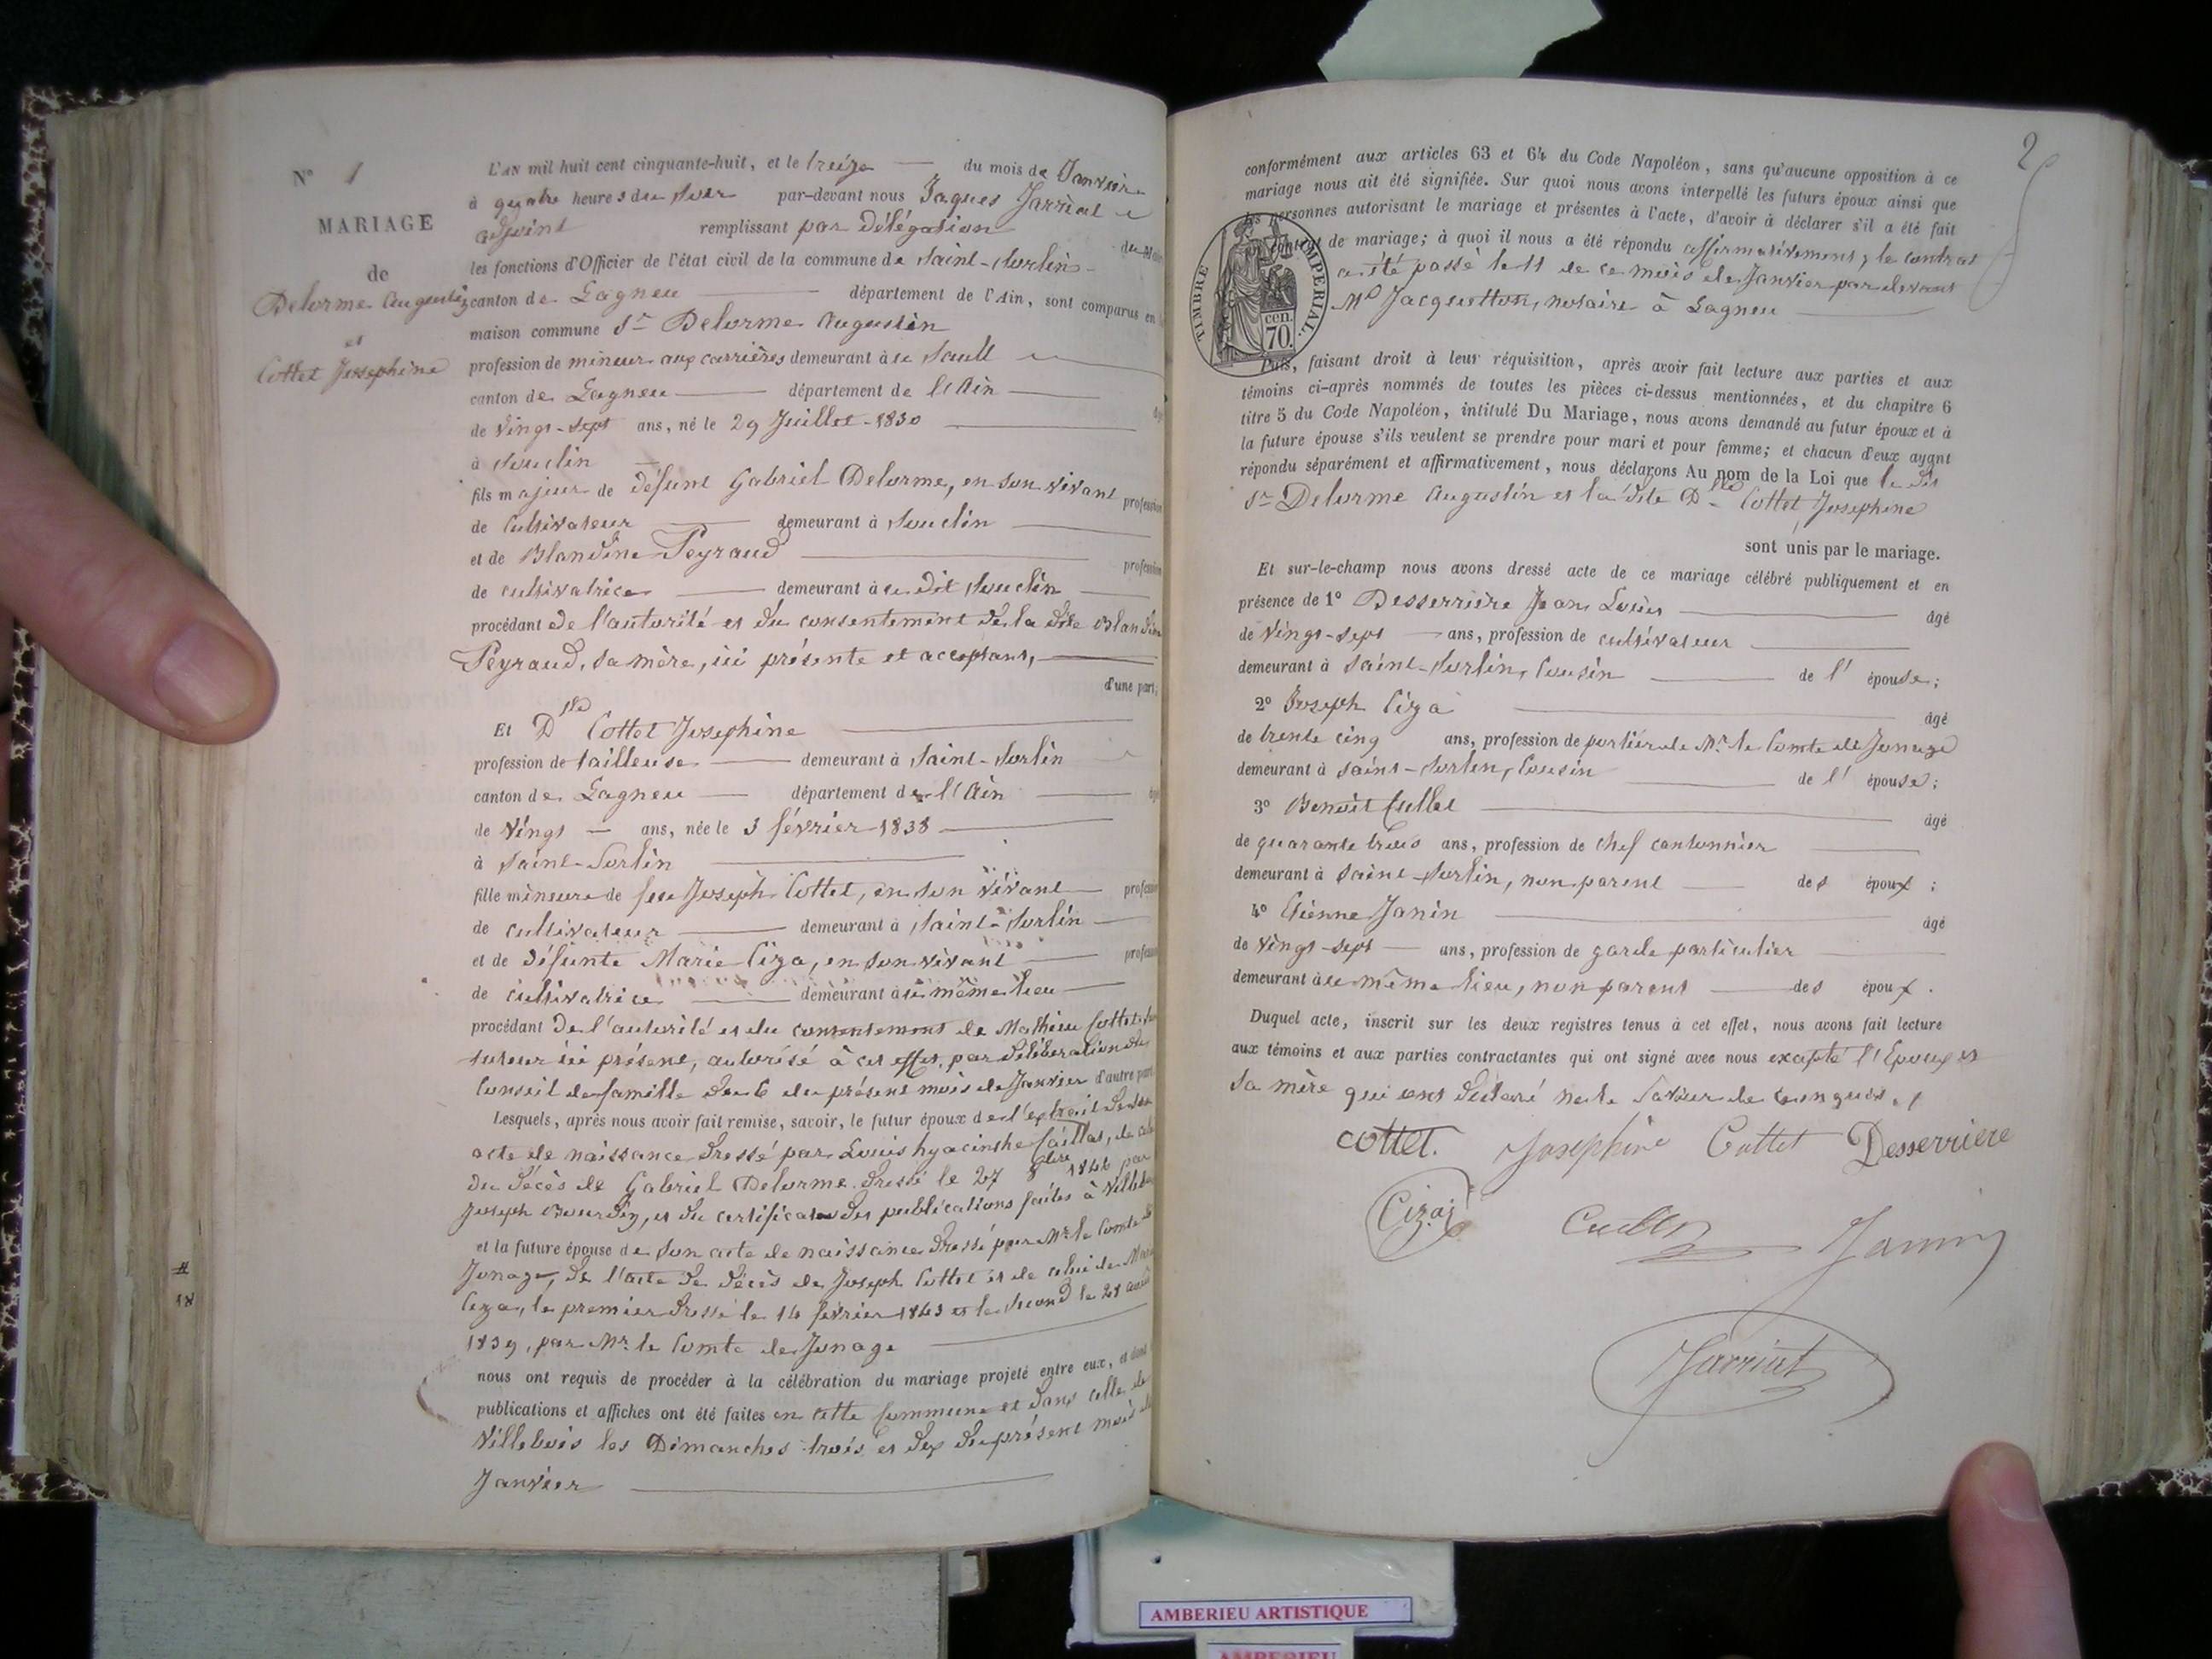 N° 1
MARIAGE
de
Delorme Augustin
et
Cottet Josephine
L'AN mil huit cent cinquante-huit, et le treize du mois de Janvier
à quatre heures du soir par-devant nous Jaques Jarrint
adjoint remplissant par Délégation du Maire
les fonctions d'Officier de l'état civil de la commune de Saint-Sorlin
canton de Lagneu département de l'Ain, sont comparus en
maison commune Sr Delorme Augustin
profession de mineur aux carrières demeurant à ce Sault
canton de Lagneu département de l'Ain
de Vingt-Sept ans, né le 29 Juillet 1830
à Souclin
fils majeur de défunt Gabriel Delorme, en son vivant profession
de Cultivateur demeurant à Souclin
et de Blandine Peyraud profession
de cultivatrice demeurant à ce dit Souclin
procédant de l'autorité et du consentement de la dite Blandine
Peyraud, sa mère, ici présente et acceptant,
d'une part;
Et Dlle Cottet Josephine
profession de tailleuse demeurant à Saint-Sorlin
canton de Lagneu département de l'Ain
de Vingt ans, née le 3 février 1838
à Saint-Sorlin
fille mineure de feu Joseph Cottet, en son vivant profession
de cultivateur demeurant à Saint-Sorlin
et de défunte Marie Ciza, en son vivant profession
de cultivatrice demeurant à ce même lieu
procédant de l'autorité et du consentement de Mathieu Cottet
tuteur ici présent, autorisé à cet effet par délibération du
Conseil de famille du 6 du présent mois de Janvier d'autre part
Lesquels, après nous avoir fait remise, savoir, le futur époux de l'extrait de son
acte de naissance dressé par Louis hyacinthe de celui
du décès de Gabriel Delorme dressé le 27 8bre par
Joseph Bourdin, et du certificat des publications faites à Villebois
et la future épouse de son acte de naissance dressé par Mr le Comte de
Jonage, de l'acte de décès de Joseph Cottet et de celui de Marie
Ciza, le premier dressé le 14 février 1843 et le second le 28
1839, par Mr le Comte de Jonage
nous ont requis de procéder à la célébration du mariage projeté entre eux, et dont
publications et affiches ont été faites en cette Commune et dans celle de
Villebois les Dimanches trois et dix du présent mois de
Janvier
2
conformément aux articles 63 et 64 du Code Napoléon, sans qu'aucune opposition à ce
mariage nous ait été signifiée. Sur quoi nous avons interpellé les futurs époux ainsi que
les personnes autorisant le mariage et présentes à l'acte, d'avoir à déclarer s'il a été fait
contrat de mariage; à quoi il nous a été répondu affirmativement, le contrat
a été passé le 11 de ce mois de Janvier par devant
Me Jacquotton, notaire à Lagneu
TIMBRE IMPERIAL.
cen.
70.
Puis, faisant droit à leur réquisition, après avoir fait lecture aux parties et aux
témoins ci-après nommés de toutes les pièces ci-dessus mentionnées, et du chapitre 6
titre 5 du Code Napoléon, intitulé Du Mariage, nous avons demandé au futur époux et à
la future épouse s'ils veulent se prendre pour mari et pour femme; et chacun d'eux ayant
répondu séparément et affirmativement, nous déclarons Au nom de la Loi que le dit
Sr Delorme Augustin et la dite Dlle Cottet Josephine
sont unis par le mariage.
Et sur-le-champ nous avons dressé acte de ce mariage célébré publiquement et en
présence de 1° Desserrière Jean Louis âgé
de Vingt-Sept ans, profession de cultivateur
demeurant à Saint-Sorlin, Cousin de l'épouse;
2° Joseph Ciza âgé
de trente cinq ans, profession de portier de Mr le Comte de Jonage
demeurant à Saint-Sorlin, Cousin de l'épouse;
3° Benoît Cullet âgé
de quarante trois ans, profession de chef cantonnier
demeurant à Saint-Sorlin, non parent des époux;
4° Etienne Janin âgé
de Vingt-Sept ans, profession de garde particulier
demeurant à ce même lieu, non parent des époux.
Duquel acte, inscrit sur les deux registres tenus à cet effet, nous avons fait lecture
aux témoins et aux parties contractantes qui ont signé avec nous excepté l'Epoux et
sa mère qui ont déclaré ne le Savoir de ce enquis.
COTTET. Josephine Cottet Desserriere
Ciza Cullet Janin
Jarrint
AMBERIEU ARTISTIQUE
AMBERIEU